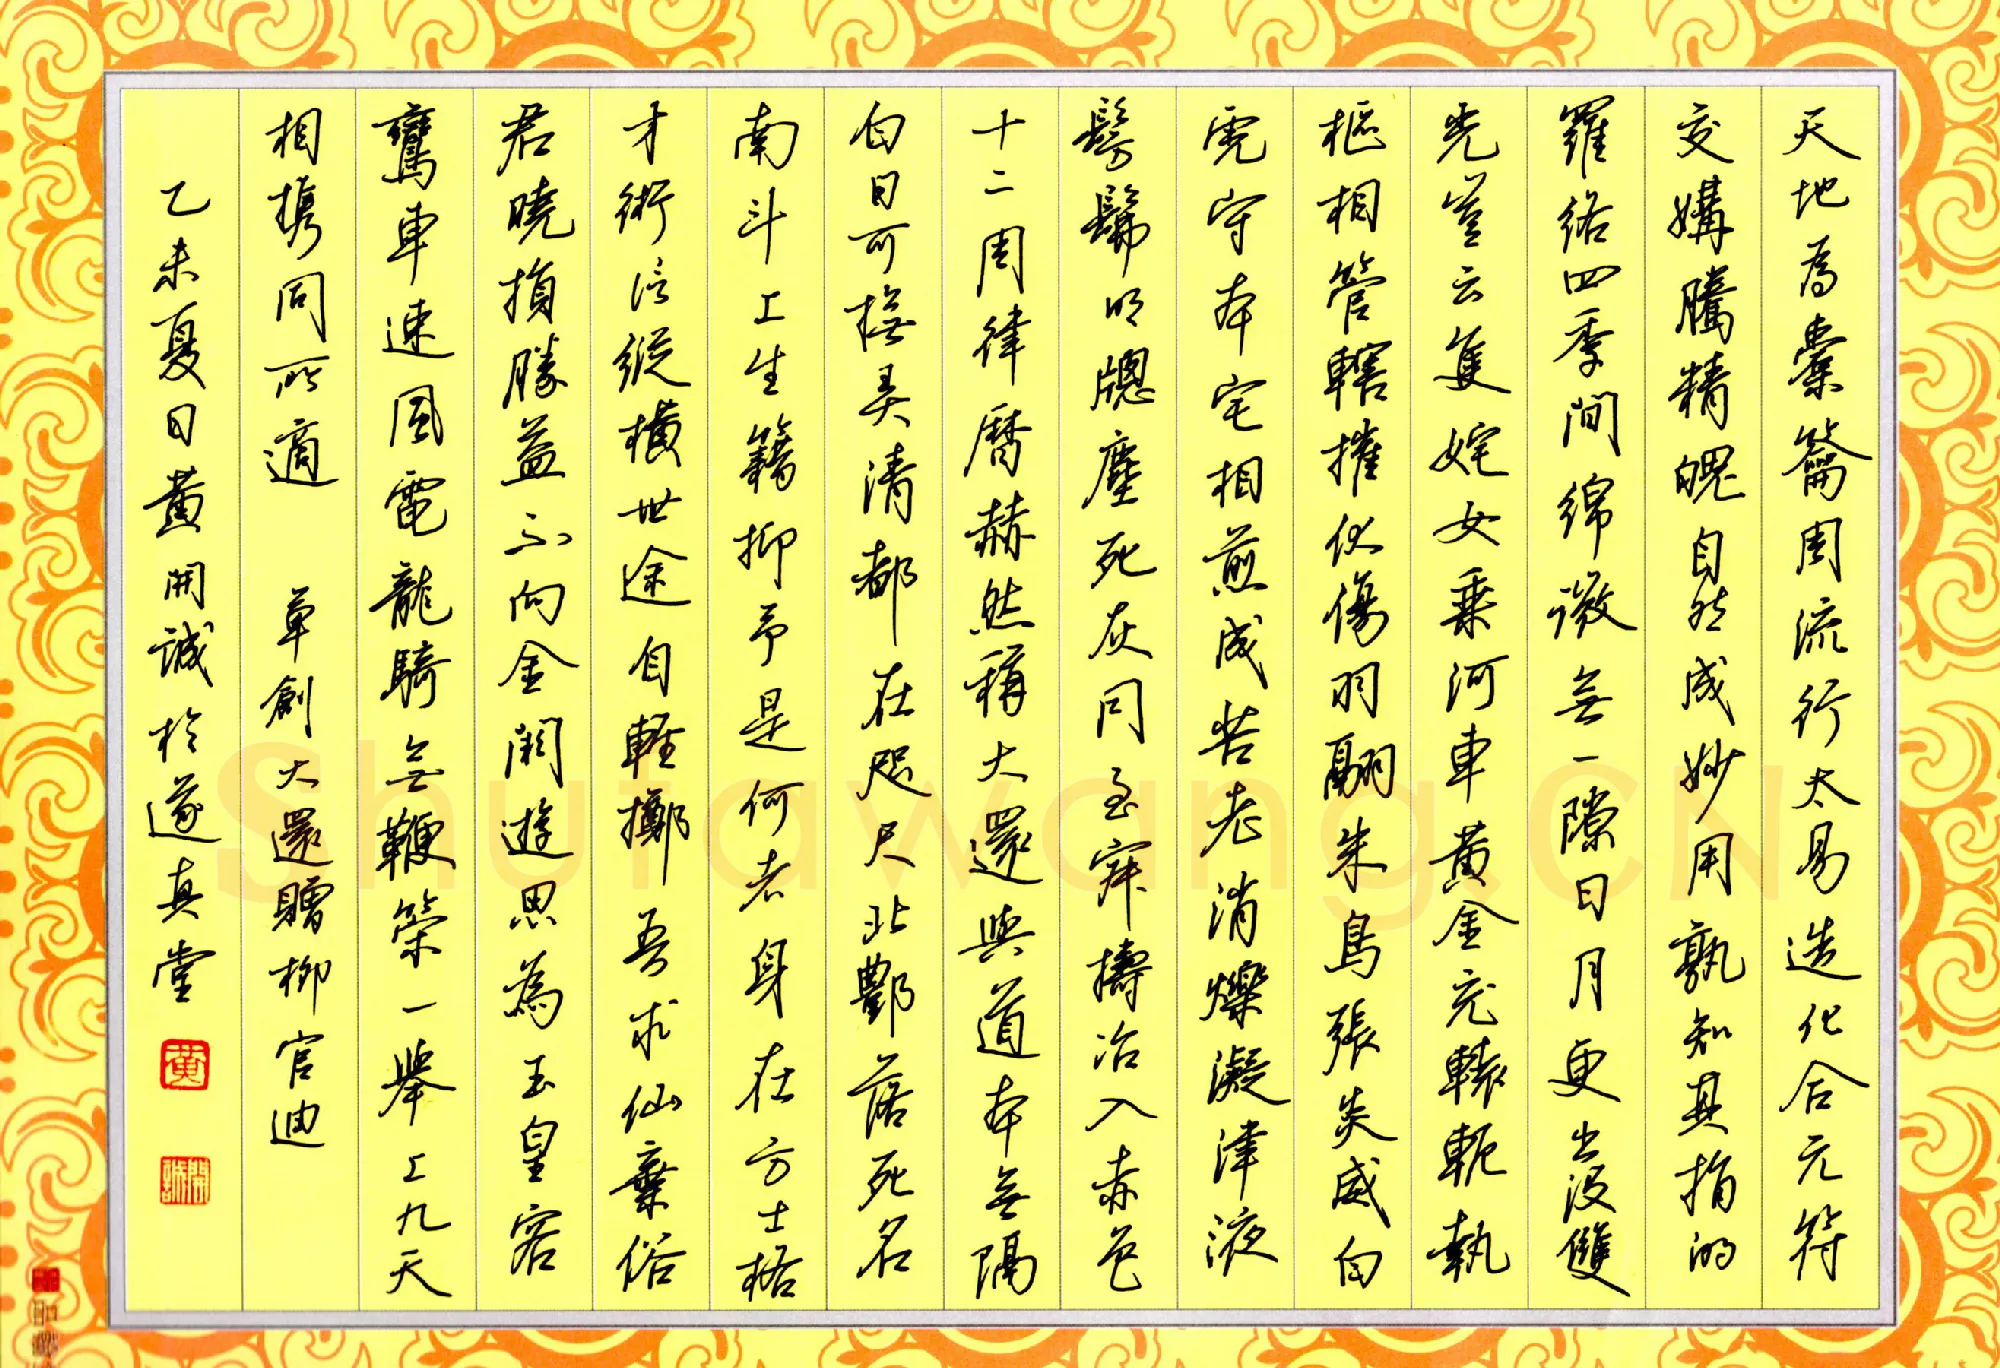 天地為橐籥周流行太易造化合元符
交媾騰精魄自然成妙用孰知其指的
羅絡四季間綿微無一隙日月更出沒雙
光豈云隻姹女乘河車黃金充轅軛執
樞相管轄摧伏傷羽翮朱鳥張炎威白
虎守本宅相煎成苦老消爍凝津液
髣髴明牕塵死灰同至寂擣冶入赤色
十二周律曆赫然稱大還與道本無隔
白日可撫弄清都在咫尺北酆落死名
南斗上生籍抑予是何者身在方士格
才術信縱橫世途自輕擲吾求仙棄俗
君曉損勝益不向金闕遊思為玉皇客
鸞車速風電龍騎無鞭策一舉上九天
相攜同所適 草創大還贈柳官迪
乙未夏日黃開誠於遂真堂
黃
開誠
Shufawang.CN